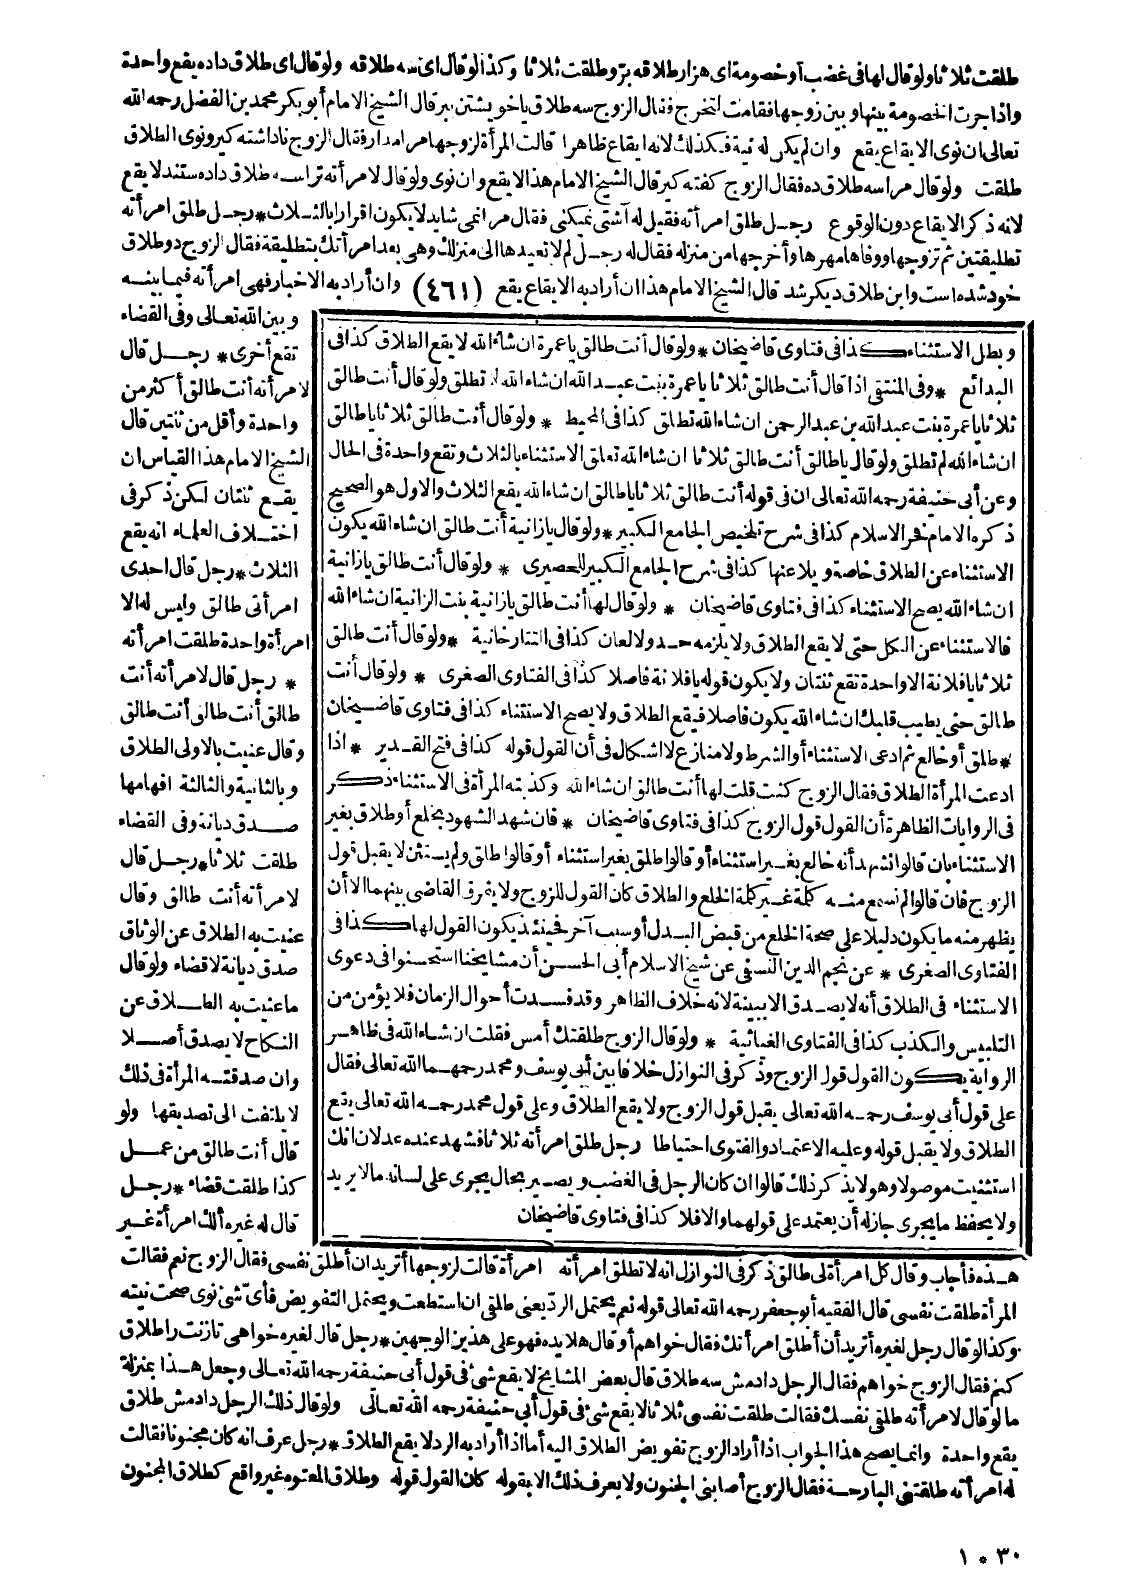 طلقت ثلاثا ولو قال لها في غضب أو خصومة اى هزار طلاقه برو طلقت ثلاثا وكذا لو قال اى سه طلاقه ولو قال اى طلاق داده يقع واحدة
واذا جرت الخصومة بينها وبين زوجها فقامت لتخرج فقال الزوج سه طلاق با خويشتن ببر قال الشيخ الامام أبو بكر محمد بن الفضل رحمه الله
تعالى ان نوى الايقاع يقع وان لم يكن له نية فكذلك لانه ايقاع ظاهرا قالت المرأة لزوجها مرا مدار فقال الزوج ناداشته كير ونوى الطلاق
طلقت ولو قال مرا سه طلاق ده فقال الزوج كفته كير قال الشيخ الامام هذا لا يقع وان نوى ولو قال لامرأته ترا سه طلاق داده ستند لا يقع
لانه ذكر الايقاع دون الوقوع رجل طلق امرأته فقيل له آشتى نميكنى فقال مرا نمى شايد لا يكون اقرارا بالثلاث * رجل طلق امرأته
تطليقتين ثم تزوجها ووفاها مهرها وأخرجها من منزله فقال له رجل لم لا تعيدها الى منزلك وهى بعد امرأتك بتطليقة فقال الزوج دو طلاق
خود شده است وابن طلاق ديكر شد قال الشيخ الامام هذا ان أراد به الايقاع يقع (٤٦١) وان أراد به الاخبار فهى امرأته فيما بينه
وبين الله تعالى وفى القضاء
تقع أخرى * رجل قال
لامرأته أنت طالق أكثر من
واحدة وأقل من ثنتين قال
الشيخ الامام هذا القياس ان
يقع ثنتان لكن ذكر فى
اختلاف العلماء انه يقع
الثلاث * رجل قال احدى
امرأتى طالق وليس له الا
امرأة واحدة طلقت امرأته
* رجل قال لامرأته أنت
طالق أنت طالق أنت طالق
وقال عنيت بالاولى الطلاق
وبالثانية والثالثة افهامها
صدق ديانة وفى القضاء
طلقت ثلاثا * رجل قال
لامرأته أنت طالق وقال
عنيت به الطلاق عن الوثاق
صدق ديانة لا قضاء ولو قال
ما عنيت به الطلاق عن
النكاح لا يصدق أصلا
وان صدقته المرأة فى ذلك
لا يلتفت الى تصديقها ولو
قال أنت طالق من عمل
كذا طلقت قضاء * رجل
قال له غيره ألك امرأة غير
وبطل الاستثناء كذا فى فتاوى قاضيخان * ولو قال أنت طالق يا عمرة ان شاء الله لا يقع الطلاق كذا فى
البدائع * وفى المنتقى اذا قال أنت طالق ثلاثا يا عمرة بنت عبد الله ان شاء الله لا تطلق ولو قال أنت طالق
ثلاثا يا عمرة بنت عبد الله بن عبد الرحمن ان شاء الله تطلق كذا فى المحيط * ولو قال أنت طالق ثلاثا يا طالق
ان شاء الله لم تطلق ولو قال يا طالق أنت طالق ثلاثا ان شاء الله تعلق الاستثناء بالثلاث وتقع واحدة فى الحال
وعن أبى حنيفة رحمه الله تعالى ان فى قوله أنت طالق ثلاثا يا طالق ان شاء الله يقع الثلاث والاول هو الصحيح
ذكره الامام فخر الاسلام كذا فى شرح تلخيص الجامع الكبير * ولو قال يا زانية أنت طالق ان شاء الله يكون
الاستثناء عن الطلاق خاصة ويلاعنها كذا فى شرح الجامع الكبير للحصيرى * ولو قال أنت طالق يا زانية
ان شاء الله يصح الاستثناء كذا فى فتاوى قاضيخان * ولو قال لها أنت طالق يا زانية بنت الزانية ان شاء الله
فالاستثناء عن الكل حتى لا يقع الطلاق ولا يلزمه حد ولا لعان كذا فى التتارخانية * ولو قال أنت طالق
ثلاثا يا فلانة الا واحدة تقع ثنتان ولا يكون قوله يا فلانة فاصلا كذا فى الفتاوى الصغرى * ولو قال أنت
طالق حتى يطيب قلبك ان شاء الله يكون فاصلا فيقع الطلاق ولا يصح الاستثناء كذا فى فتاوى قاضيخان
* طلق أو خالع ثم ادعى الاستثناء أو الشرط ولا منازع لا اشكال فى أن القول قوله كذا فى فتح القدير * اذا
ادعت المرأة الطلاق فقال الزوج كنت قلت لها أنت طالق ان شاء الله وكذبته المرأة فى الاستثناء ذكر
فى الروايات الظاهرة أن القول قول الزوج كذا فى فتاوى قاضيخان * فان شهد الشهود بخلع أو طلاق بغير
الاستثناء بان قالوا نشهد أنه خالع بغير استثناء أو قالوا طلق بغير استثناء أو قالوا طلق ولم يستثن لا يقبل قول
الزوج فان قالوا لم نسمع منه كلمة غير كلمة الخلع والطلاق كان القول للزوج ولا يفرق القاضى بينهما الا أن
يظهر منه ما يكون دليلا على صحة الخلع من قبض البدل أو سبب آخر فحينئذ يكون القول لها كذا فى
الفتاوى الصغرى * عن نجم الدين النسفى عن شيخ الاسلام أبى الحسن أن مشايخنا استحسنوا فى دعوى
الاستثناء فى الطلاق أنه لا يصدق الا ببينة لانه خلاف الظاهر وقد فسدت أحوال الزمان فلا يؤمن من
التلبيس والكذب كذا فى الفتاوى الغياثية * ولو قال الزوج طلقتك أمس فقلت ان شاء الله فى ظاهر
الرواية يكون القول قول الزوج وذكر فى النوازل خلافا بين أبى يوسف ومحمد رحمهما الله تعالى فقال
على قول أبى يوسف رحمه الله تعالى يقبل قول الزوج ولا يقع الطلاق وعلى قول محمد رحمه الله تعالى يقع
الطلاق ولا يقبل قوله وعليه الاعتماد والفتوى احتياطا رجل طلق امرأته ثلاثا فشهد عنده عدلان انك
استثنيت موصولا وهو لا يذكر ذلك قالوا ان كان الرجل فى الغضب ويصير بحال يجرى على لسانه ما لا يريد
ولا يحفظ ما يجرى جاز له أن يعتمد على قولهما والا فلا كذا فى فتاوى قاضيخان
هذه فأجاب وقال كل امرأة لى طالق ذكر فى النوازل انه لا تطلق امرأته امرأة قالت لزوجها أتريد ان أطلق نفسى فقال الزوج نعم فقالت
المرأة طلقت نفسى قال الفقيه أبو جعفر رحمه الله تعالى قوله نعم يحتمل الرد يعنى طلقى ان استطعت ويحتمل التفويض فأى شئ نوى صحت نيته
وكذا لو قال رجل لغيره أتريد أن أطلق امرأتك فقال خواهم أو قال هلا يده فهو على هذين الوجهين * رجل قال لغيره خواهى تا زنت را طلاق
كنم فقال الزوج خواهم فقال الرجل دادمش سه طلاق قال بعض المشايخ لا يقع شئ فى قول أبى حنيفة رحمه الله تعالى وجعل هذا بمنزلة
ما لو قال لامرأته طلقى نفسك فقالت طلقت نفسى ثلاثا لا يقع شئ فى قول أبى حنيفة رحمه الله تعالى ولو قال ذلك الرجل دادمش طلاق
يقع واحدة وانما يصح هذا الجواب اذا أراد الزوج تفويض الطلاق اليه أما اذا أراد به الرد لا يقع الطلاق * رجل عرف انه كان مجنونا فقالت
له امرأته طلقتنى البارحة فقال الزوج أصابنى الجنون ولا يعرف ذلك الا بقوله كان القول قوله وطلاق المعتوه غير واقع كطلاق المجنون
١٠٣٠